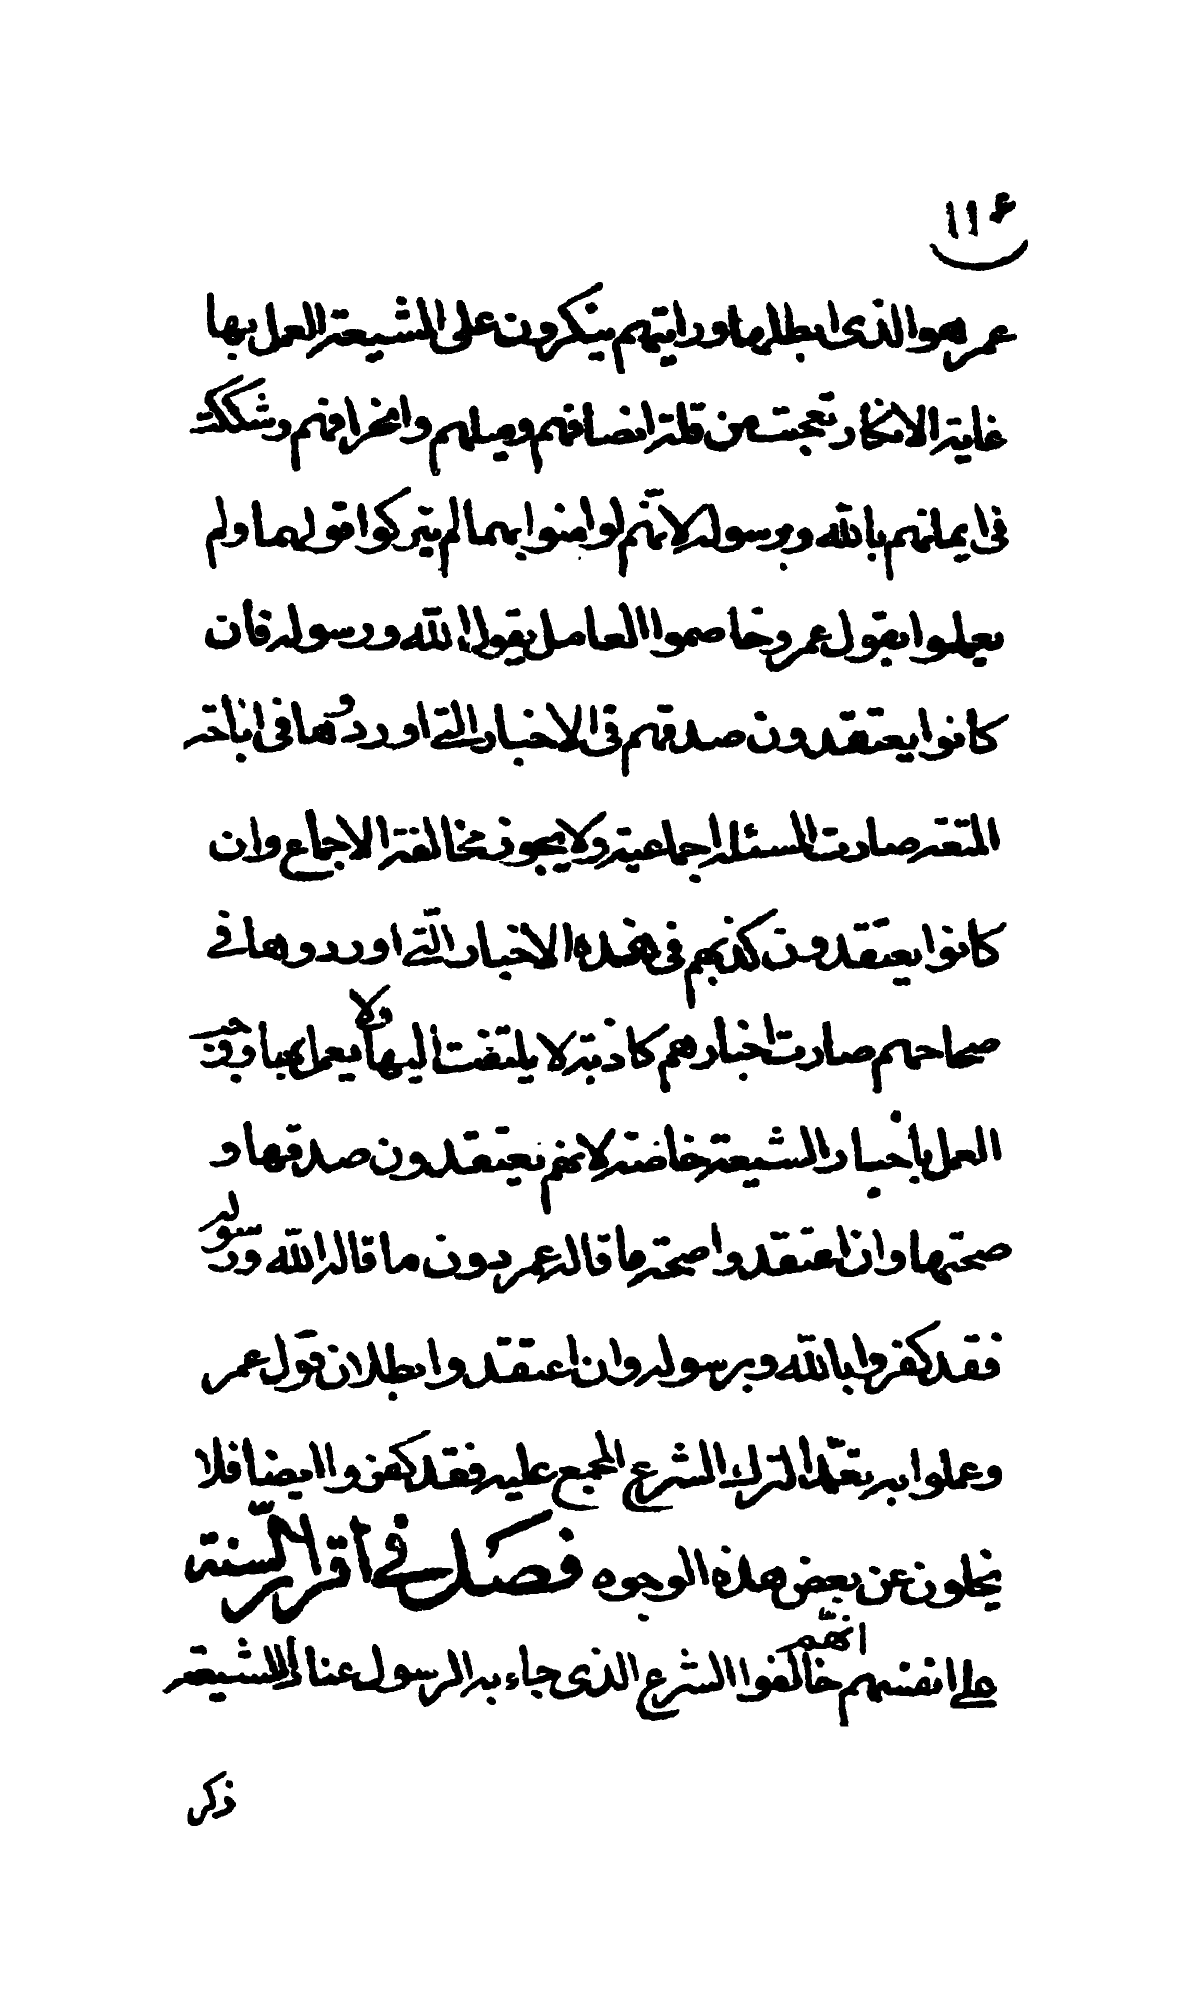 ١١٤
عمر هو الذى ابطلها ورايتهم ينكرون على الشيعة العمل بها
غاية الانكار تعجبت من قلة انصافهم وميلهم وانحرافهم وشككت
فى ايمانهم بالله وبرسوله لانهم لو امنوا بهما لم يتركوا قولهما ولم
يعملوا بقول عمر وخاصموا العامل بقول الله ورسوله فان
كانوا يعتقدون صدقهم فى الاخبار التى اوردوها فى اباحة
المتعة صارت المسئلة اجماعية ولا يجوز مخالفة الاجماع وان
كانوا يعتقدون كذبهم فى هذه الاخبار التى اوردوها فى
صحاحهم صارت اخبارهم كاذبة لا يلتفت اليها ولا يعمل بها
العمل باخبار الشيعة خاصة لانهم يعتقدون صدقها و
صحتها وان اعتقدوا صحة ما قاله عمر دون ما قاله الله ورسوله
فقد كفروا بالله وبرسوله وان اعتقدوا بطلان قول عمر
وعملوا به تعمدا لترك الشرع المجمع عليه فقد كفروا ايضا فلا
يخلون عن بعض هذه الوجوه فصل فى اقرار السنة
على انفسهم انهم خالفوا الشرع الذى جاء به الرسول عنادا للشيعة
ذكر